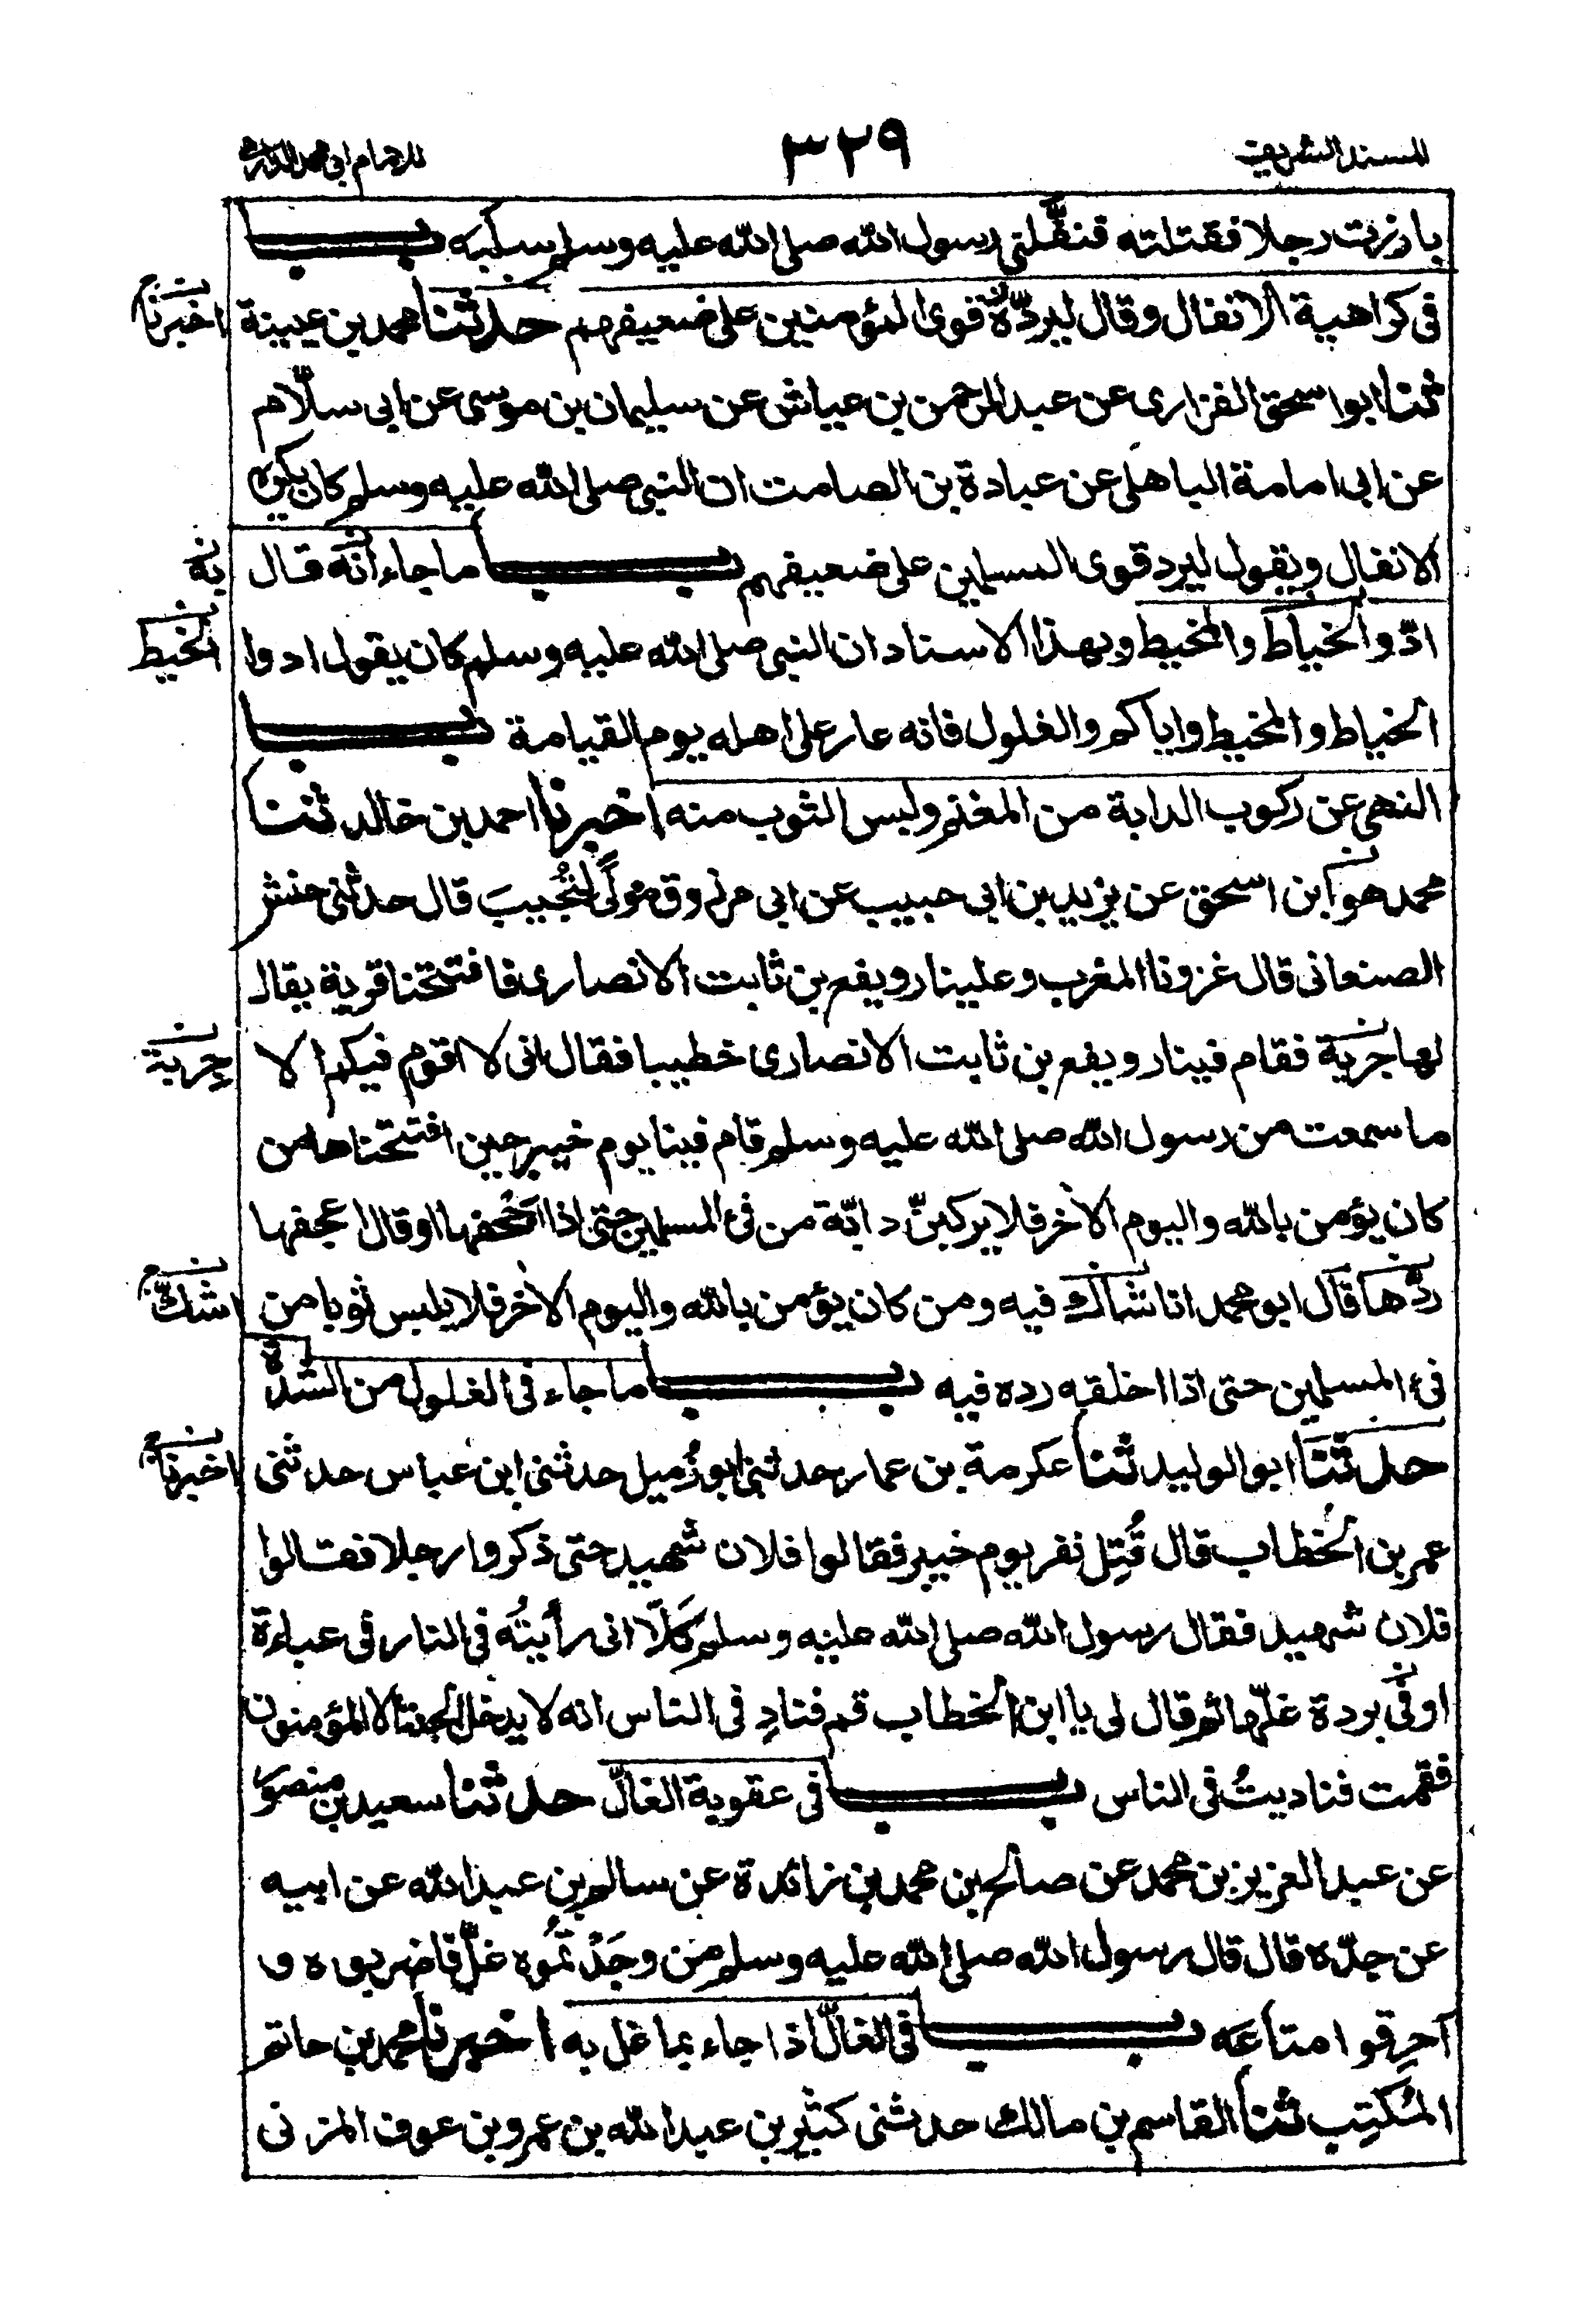 المسند الشريف
٣٢٩
للامام ابى محمد الدارمى
بارزت رجلا فقتلته فنفّلنى رسول الله صلى الله عليه وسلم سلبه باب
فى كراهية الانفال وقال ليردّ قوى المؤمنين على ضعيفهم حدثنا محمد بن عيينة
اخبرنا
ثنا ابو اسحق الفزارى عن عبد الرحمن بن عياش عن سليمان بن موسى عن ابى سلّام
عن ابى امامة الباهلى عن عبادة بن الصامت ان النبى صلى الله عليه وسلم كان يكره
الانفال ويقول ليرد قوى المسلمين على ضعيفهم باب ما جاء انّه قال
ادّوا الخياط والمخيط وبهذا الاسناد ان النبى صلى الله عليه وسلم كان يقول ادوا
الخيط
الخياط والمخيط واياكم والغلول فانه عار على اهله يوم القيامة باب
النهى عن ركوب الدابة من المغنم ولبس الثوب منه اخبرنا احمد بن خالد ثنا
محمد هو ابن اسحق عن يزيد بن ابى حبيب عن ابى مرزوق مولًى لتُجيبَ قال حدثنى حنش
الصنعانى قال غزونا المغرب وعلينا رويفع بن ثابت الانصارى فافتتحنا قرية يقال
لها جربة فقام فينا رويفع بن ثابت الانصارى خطيبا فقال انى لا اقوم فيكم الا
جِربة
ما سمعت من رسول الله صلى الله عليه وسلم قام فينا يوم خيبر حين افتتحناها من
كان يؤمن بالله واليوم الاخر فلا يركبنّ دابّة من فئ المسلمين حتى اذا اجحفها او قال اعجفها
ردّها قال ابو محمد انا شاك فيه ومن كان يؤمن بالله واليوم الاخر فلا يلبس ثوبا من
اشكّ
فئ المسلمين حتى اذا اخلقه رده فيه باب ما جاء فى الغلول من الشدّة
حدثنا ابو الوليد ثنا عكرمة بن عمار حدثنى ابو زُميل حدثنى ابن عباس حدثنى
اخبرنا
عمر بن الخطاب قال قُتِل نفر يوم خيبر فقالوا فلان شهيد حتى ذكروا رجلا فقالوا
فلان شهيد فقال رسول الله صلى الله عليه وسلم كَلّا انى رأيتُه فى النار فى عباءة
او فى بردة غلّها ثم قال لى يا ابن الخطاب قم فنادِ فى الناس انه لا يدخل الجنة الا المؤمنون
فقمت فناديتُ فى الناس باب فى عقوبة الغالّ حدثنا سعيد بن منصور
عن عبد العزيز بن محمد عن صالح بن محمد بن زائدة عن سالم بن عبد الله عن ابيه
عن جدّه قال قال رسول الله صلى الله عليه وسلم من وجَدْتمُوه غلّ فاضربوه و
احرِقوا متاعَه باب فى الغالّ اذا جاء بما غل به اخبرنا محمد بن حاتم
المُكتِب ثنا القاسم بن مالك حدثنى كثير بن عبد الله بن عمرو بن عوف المزنى